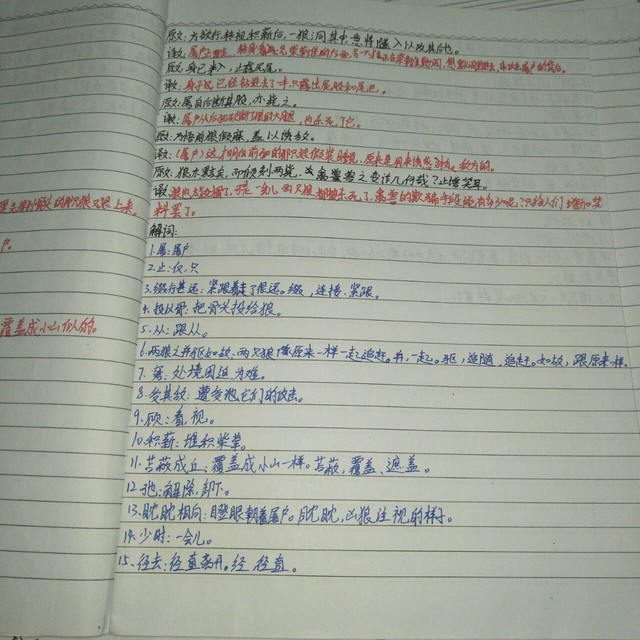 黑走得到骨头的那只狼又跟上来。
户。
覆盖成小山似的。
原文:方欲行,转视积薪后,一狼洞其中,意将隧入以攻其后也。
译文:屠户
原文:身已半入,止露尻尾。
译文:身子已经钻进去了一半,只露出屁股和尾巴。
原文:屠自后断其股,亦毙之。
译文:屠户从后面砍断了狼的大腿,也杀死了它。
原文:乃悟前狼假寐,盖以诱敌。
译文:(屠户)这才明白前面的那只狼假装睡觉,原来是用来诱惑敌方的。
原文:狼亦黠矣,而顷刻两毙,禽兽之变诈几何哉?止增笑耳。
译文:狼也太狡猾了,可是一会儿两只狼都被杀死了,禽兽的欺骗手段能有多少呢?只给人们增加笑
料罢了。
解词:
1.屠:屠户
2.止:仅,只
3.缀行甚远:紧跟着走了很远。缀,连接、紧跟。
4.投以骨:把骨头投给狼。
5.从:跟从。
6.两狼之并驱如故:两只狼像原来一样一起追赶。并,一起。驱,追随,追赶。如故,跟原来一样.
7.窘:处境困迫,为难。
8.受其敌:遭受它们的攻击。
9.顾:看,视。
10.积薪:堆积柴草。
11.苫蔽成丘:覆盖成小山一样。苫蔽,覆盖、遮盖。
12.弛:解除,卸下。
13.眈眈相向:瞪眼朝着屠户。眈眈,凶狠注视的样子。
14.少时:一会儿。
15.径去:径直离开。径,径直。